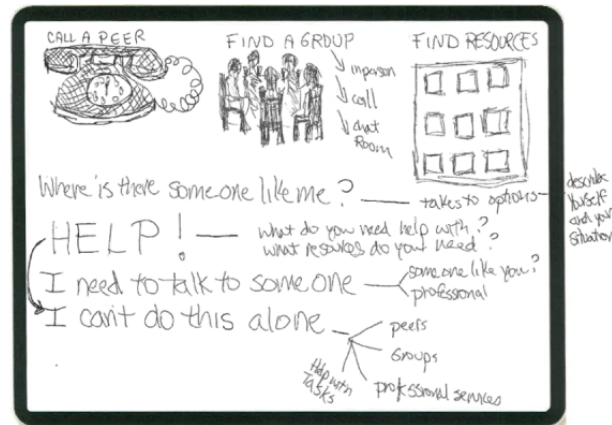 CALL A PEER
FIND A GROUP
in person
call
chat
Room
FIND RESOURCES
Where is there someone like me? — takes to options —
describe
yourself
and your
situation
HELP! — what do you need help with?
what resources do you need?
I need to talk to someone
someone like you?
professional
I can't do this alone
peers
Groups
professional services
Help with
Tasks